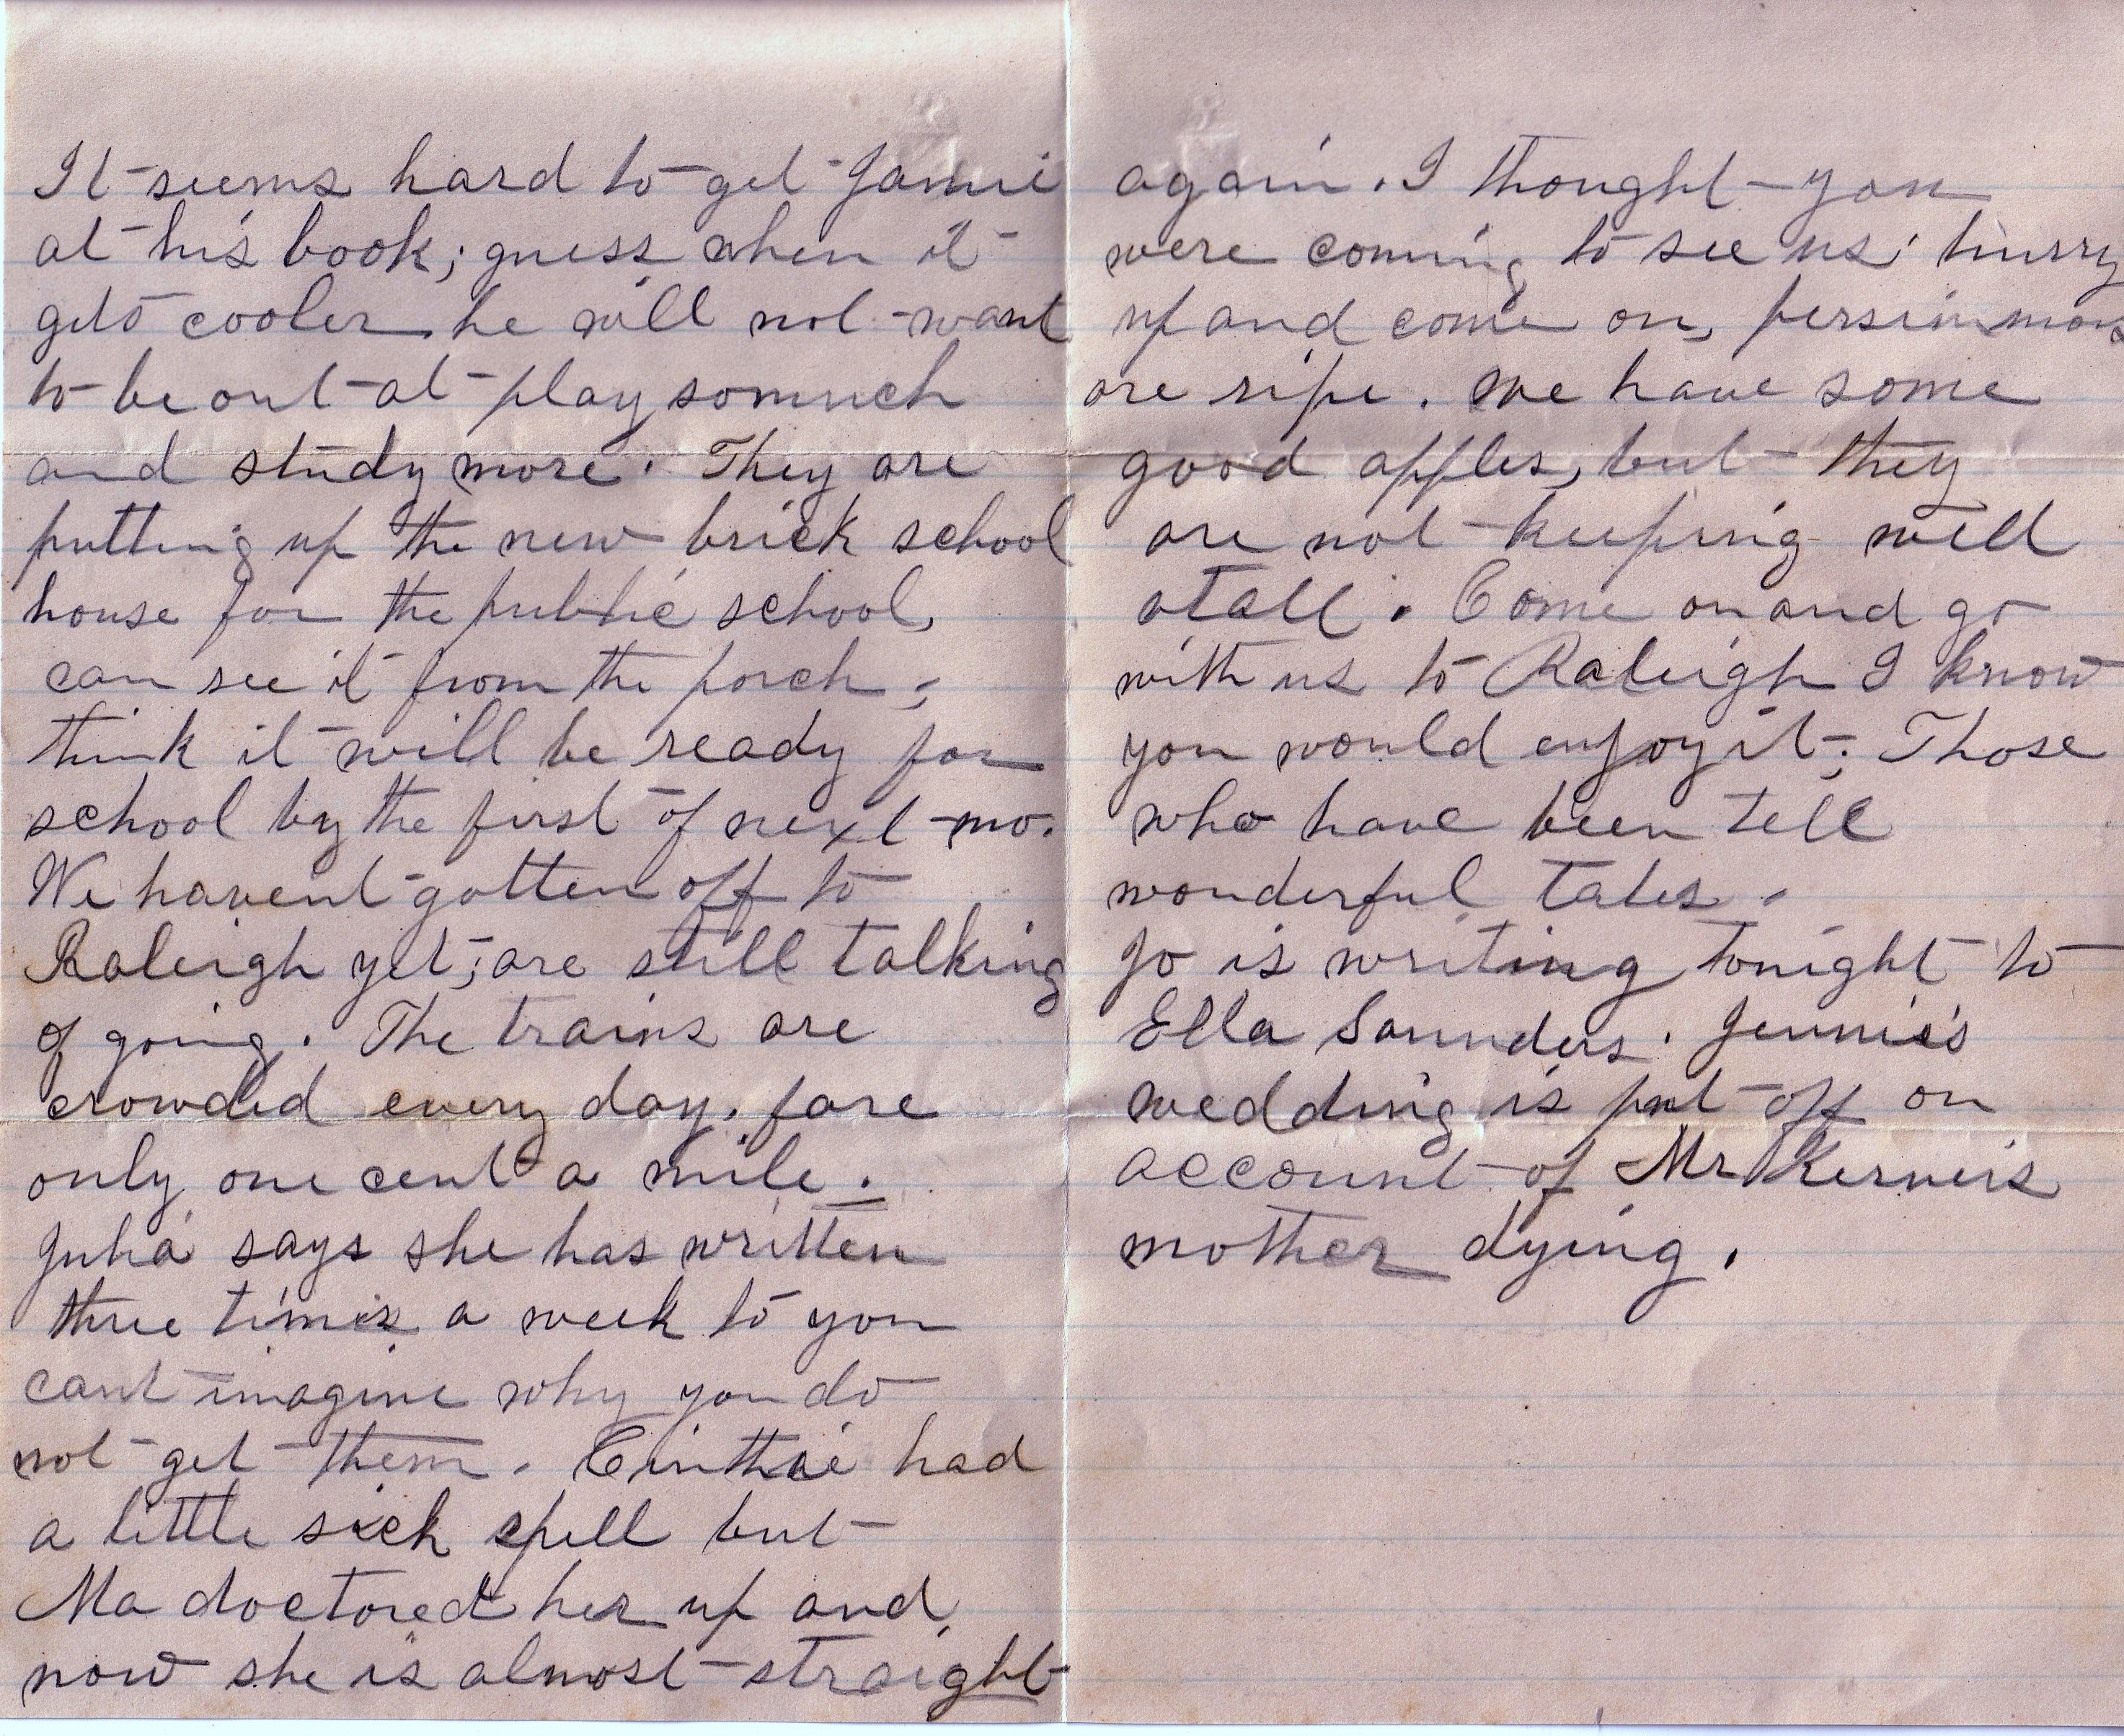 It seems hard to get Jamie
at his book; guess when it
gets cooler he will not want
to be out at play somuch
and study more. They are
putting up the new brick school
house for the public school,
can see it from the porch,
think it will be ready for
school by the first of next mo.
We havent gotten off to
Raleigh yet; are still talking
of going. The trains are
crowded every day. fare
only one cent a mile.
Julia says she has written
three times a week to you
cant imagine why you do
not get them. Cinthie had
a little sick spell but
Ma doctored her up and
now she is almost straight
again. I thought you
were coming to see us; hurry
up and come on, persimmons
are ripe. We have some
good apples, but they
are not keeping well
atall. Come on and go
with us to Raleigh I know
you would enjoy it; Those
who have been tell
wonderful tales.
Jo is writing tonight to
Ella Saunders. Jennie's
wedding is put off on
account of Mr
mother dying.